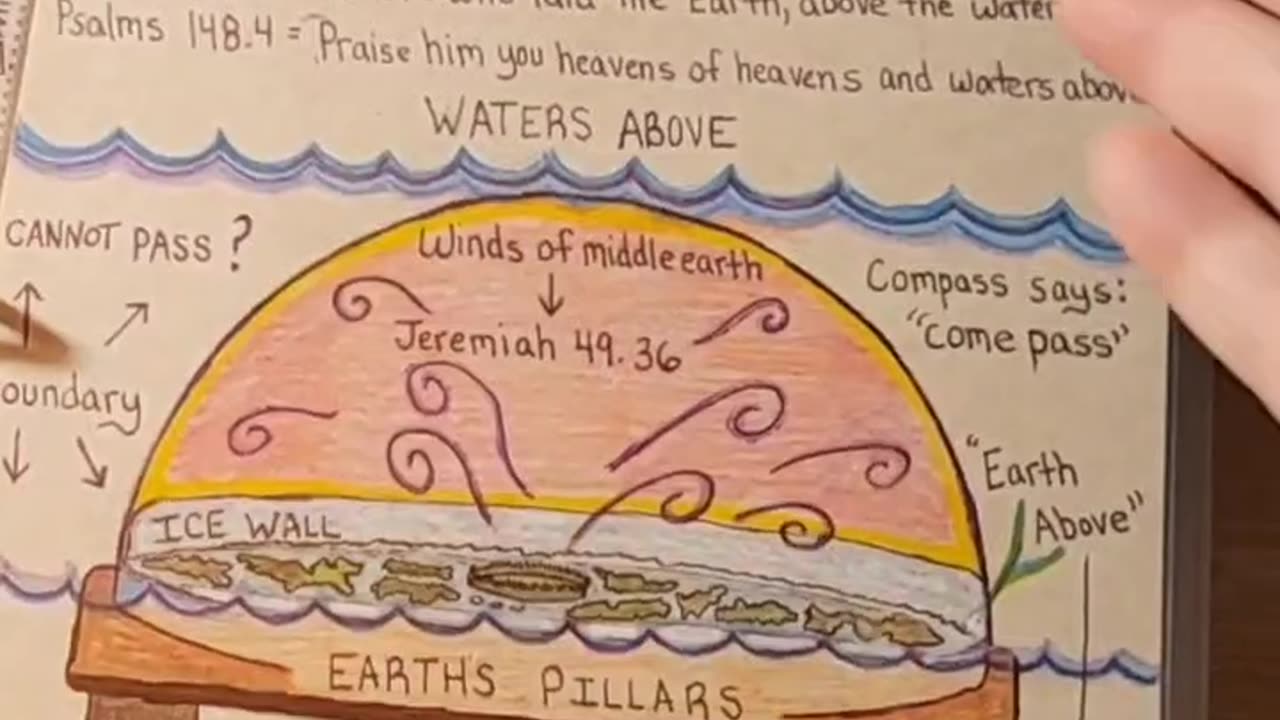 the Earth, above the water
Psalms 148.4 = Praise him you heavens of heavens and waters above
WATERS ABOVE
CANNOT PASS?
Winds of middle earth
Jeremiah 49.36
Compass says:
"Come pass"
oundary
"Earth
Above"
ICE WALL
EARTHS PILLARS